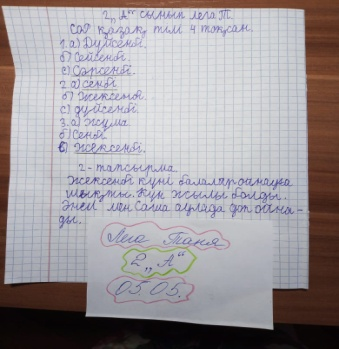 2 „А“ сынып Лега Т.
СОР қазақ тілі 4 тоқсан.
1. а) Дүйсенбі.
б) Сейсенбі.
с) Сәрсенбі.
2 а) сенбі
б) Жексенбі.
с) дүйсенбі.
3. а) Жұма.
б) Сенбі
в) Жексенбі.
2 - тапсырма.
Жексенбі күні балалар ойнауға
шықты. Күн жылы болды.
Әнел мен Саша аулада доп ойна-
ды.
Лега Таня
2 „А“
05.05.